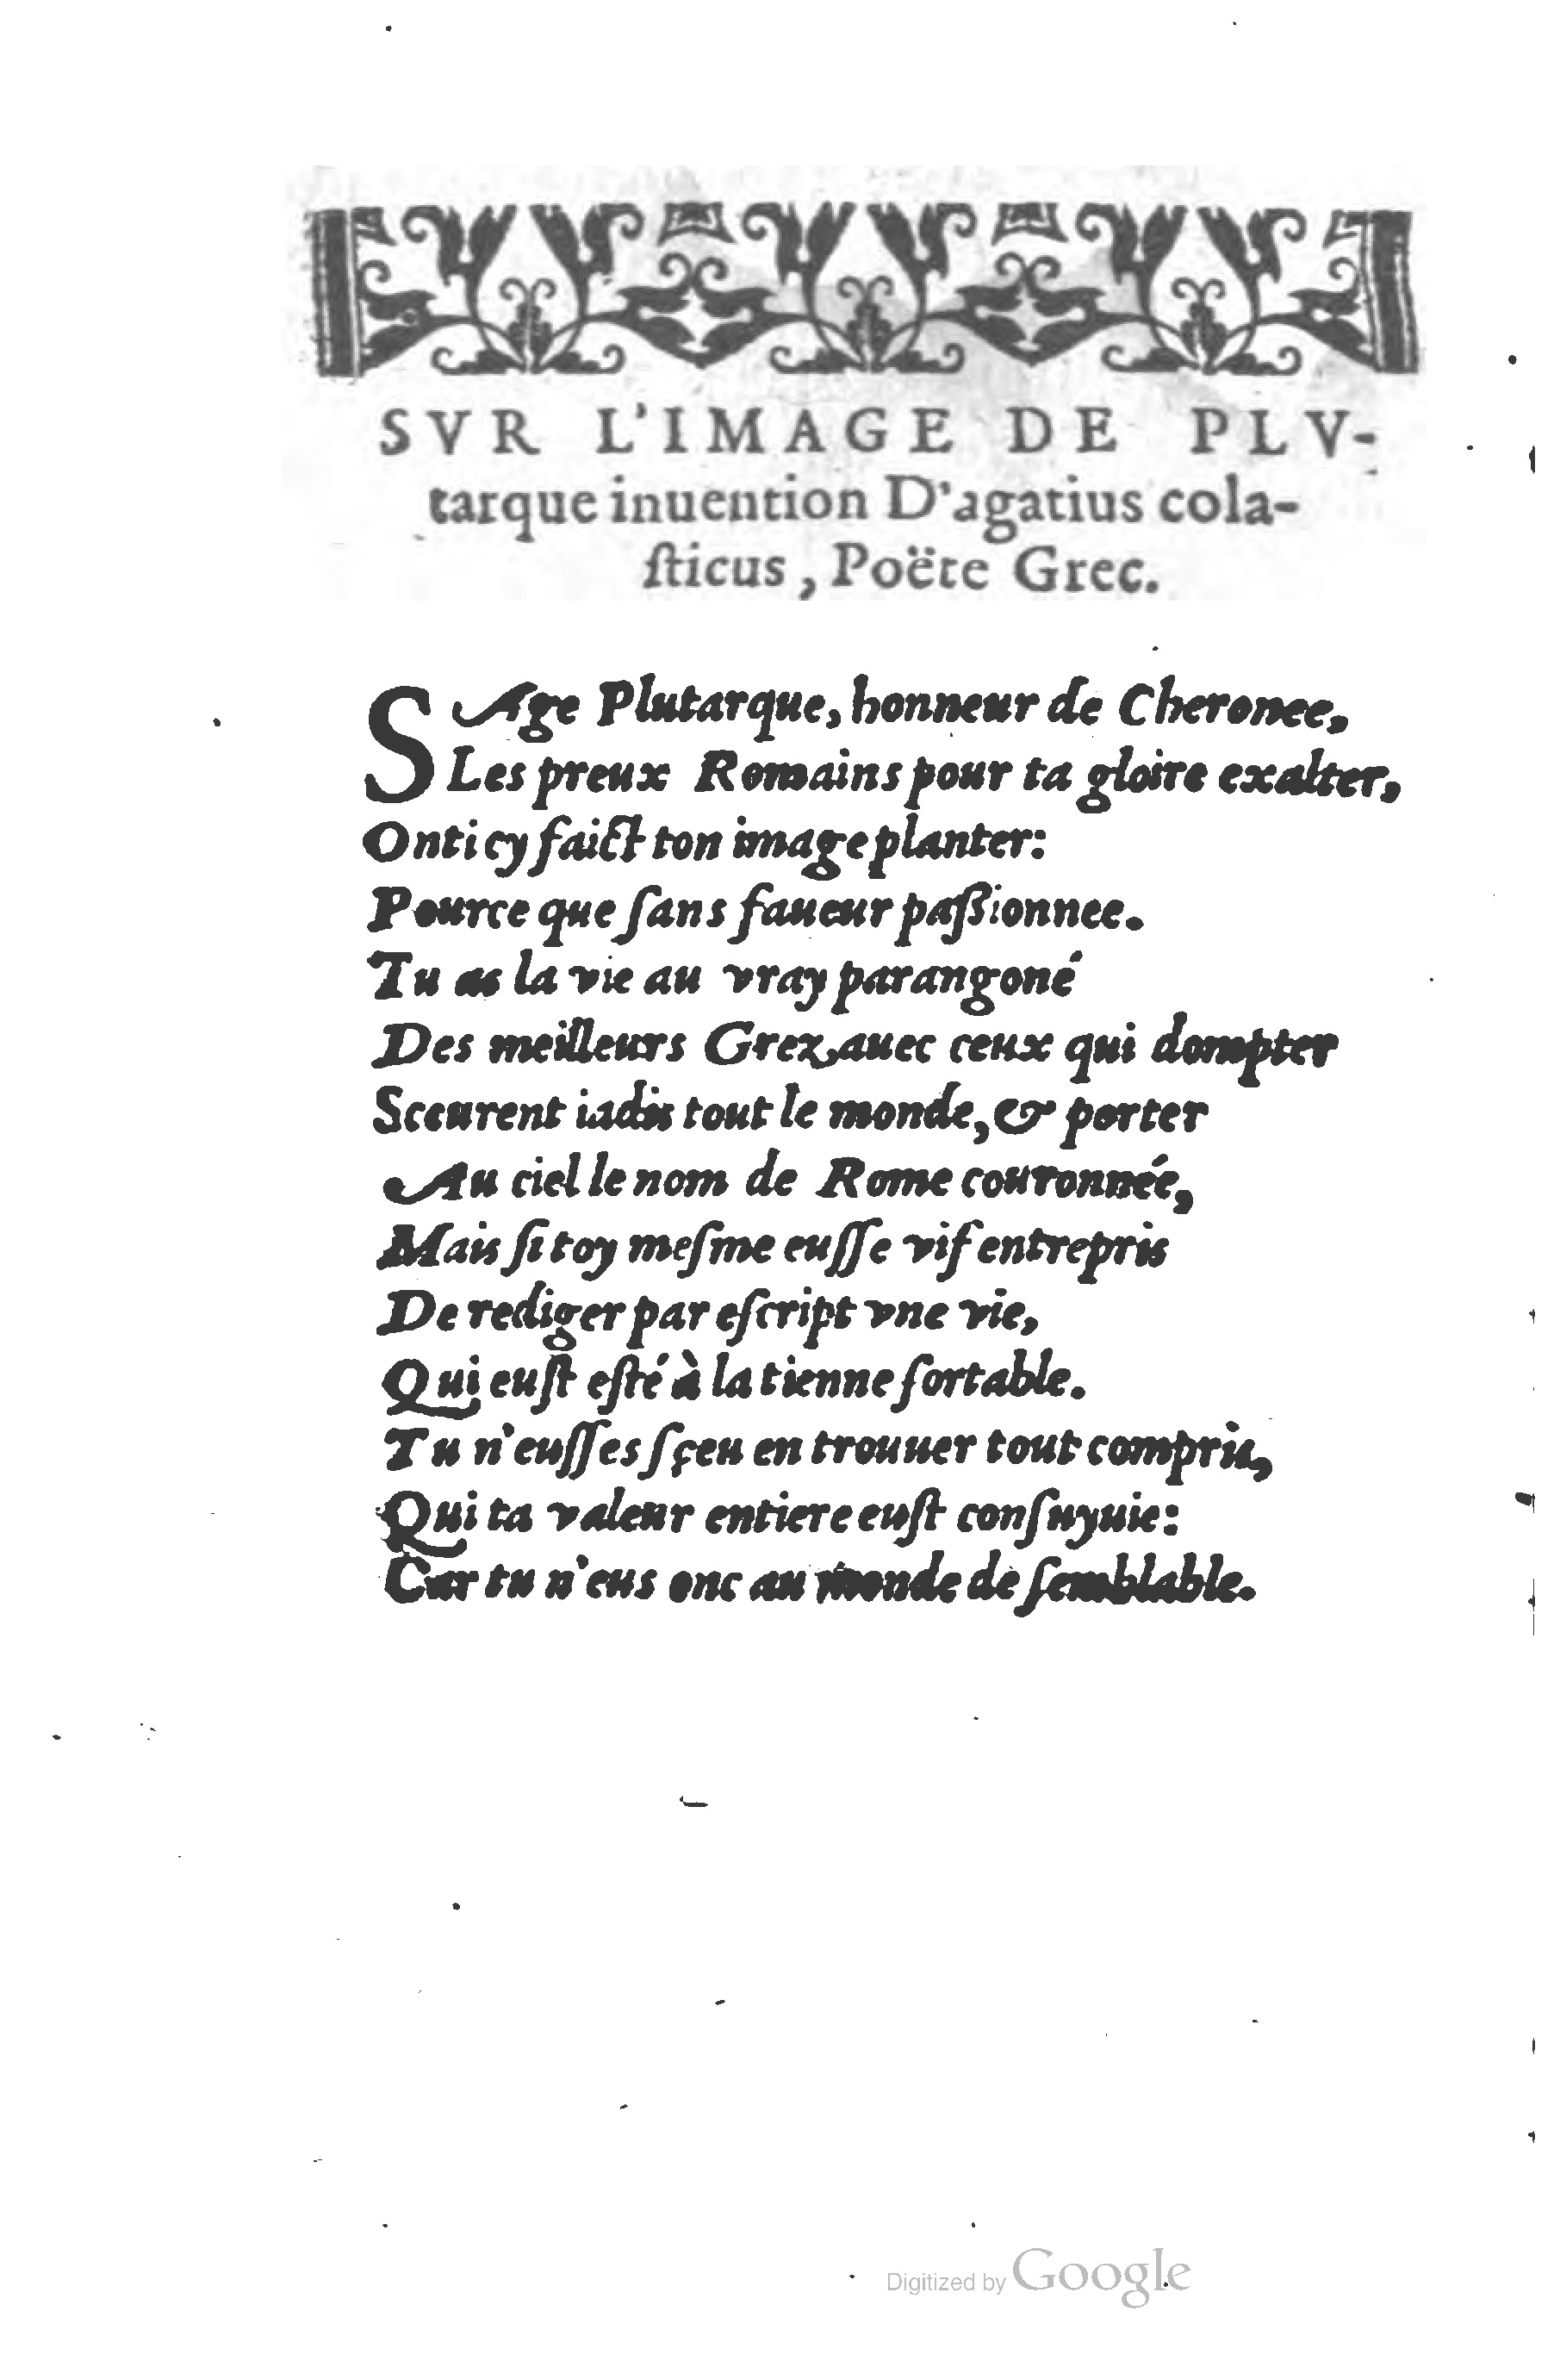 SVR L'IMAGE DE PLV-
tarque inuention D'agatius cola-
sticus, Poëte Grec.
SAge Plutarque, honneur de Cheronee,
Les preux Romains pour ta gloire exalter,
Ont icy faict ton image planter:
Pource que ſans faueur paßionnee.
Tu as la vie au vray parangoné
Des meilleurs Grez, auec ceux qui dompter
Sceurent iadis tout le monde, & porter
Au ciel le nom de Rome couronnée,
Mais ſi toy meſme euſſe vif entrepris
De rediger par eſcript vne vie,
Qui euſt eſté à la tienne ſortable.
Tu n'euſſes ſçeu en trouuer tout compris,
Qui ta valeur entiere euſt conſuyuie:
Car tu n'eus onc au monde de ſemblable.
Digitized by Google